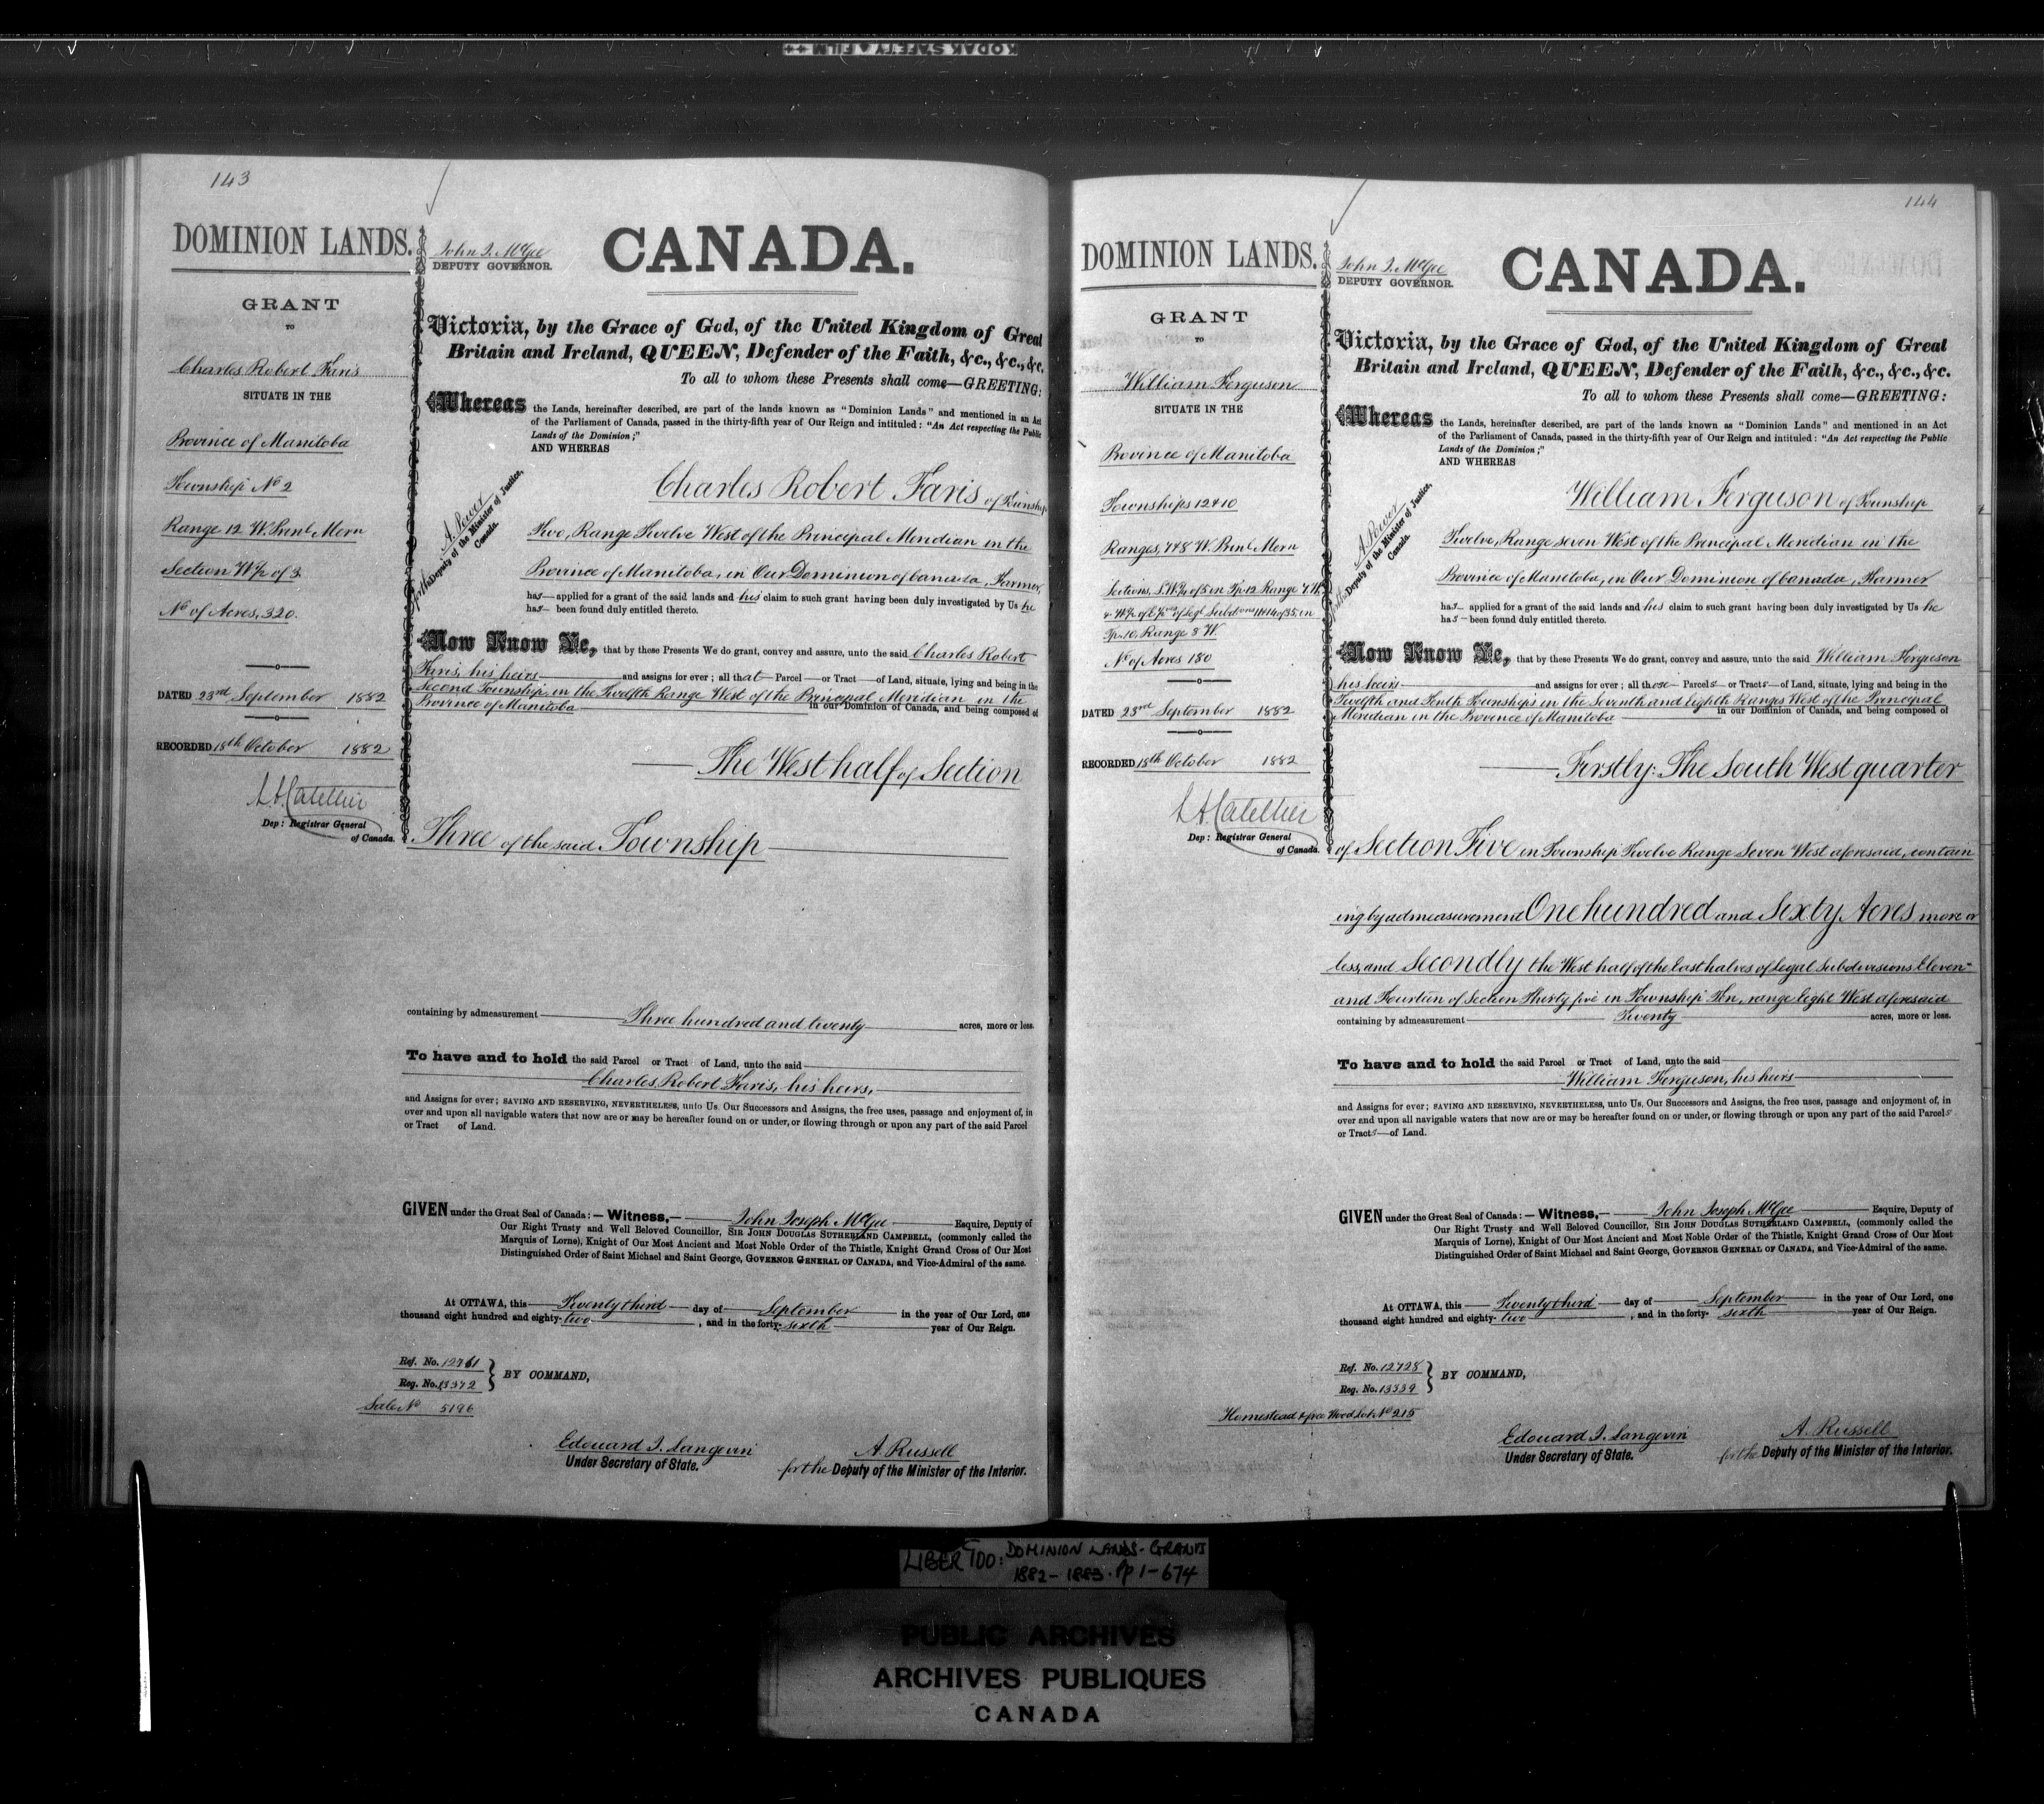 KODAK SAFETY FILM
143
DOMINION LANDS.
GRANT
TO
Charles Robert Faris
SITUATE IN THE
Province of Manitoba
Township No 2
Range 12 W. Prinl Mern
Section W½ of 3
No of Acres, 320.
DATED 23rd September 1882
RECORDED 18th October 1882
L.A. Catellier
Dep: Registrar General
of Canada.
John J. McGee
DEPUTY GOVERNOR.
CANADA.
Victoria, by the Grace of God, of the United Kingdom of Great
Britain and Ireland, QUEEN, Defender of the Faith, &c., &c., &c.
To all to whom these Presents shall come—GREETING:
Whereas the Lands, hereinafter described, are part of the lands known as "Dominion Lands" and mentioned in an Act
of the Parliament of Canada, passed in the thirty-fifth year of Our Reign and intituled: "An Act respecting the Public
Lands of the Dominion;"
AND WHEREAS
A. Power
for the Deputy of the Minister of Justice,
Canada.
Charles Robert Faris of Township
Two, Range Twelve West of the Principal Meridian in the
Province of Manitoba, in Our Dominion of Canada, Farmer,
has—applied for a grant of the said lands and his claim to such grant having been duly investigated by Us he
has— been found duly entitled thereto.
Now Know Ye, that by these Presents We do grant, convey and assure, unto the said Charles Robert
Faris, his heirs and assigns for ever; all that Parcel or Tract of Land, situate, lying and being in the
Second Township, in the Twelfth Range West of the Principal Meridian in the
Province of Manitoba in our Dominion of Canada, and being composed of
The West half of Section
Three of the said Township
containing by admeasurement Three hundred and twenty acres, more or less.
To have and to hold the said Parcel or Tract of Land, unto the said
Charles Robert Faris, his heirs,
and Assigns for ever; SAVING AND RESERVING, NEVERTHELESS, unto Us, Our Successors and Assigns, the free uses, passage and enjoyment of, in
over and upon all navigable waters that now are or may be hereafter found on or under, or flowing through or upon any part of the said Parcel
or Tract of Land.
GIVEN under the Great Seal of Canada:— Witness,— John Joseph McGee Esquire, Deputy of
Our Right Trusty and Well Beloved Councillor, SIR JOHN DOUGLAS SUTHERLAND CAMPBELL, (commonly called the
Marquis of Lorne), Knight of Our Most Ancient and Most Noble Order of the Thistle, Knight Grand Cross of Our Most
Distinguished Order of Saint Michael and Saint George, GOVERNOR GENERAL OF CANADA, and Vice-Admiral of the same.
At OTTAWA, this Twenty third day of September in the year of Our Lord, one
thousand eight hundred and eighty-two, and in the forty-sixth year of Our Reign.
Ref. No. 12761
Reg. No. 13372
BY COMMAND,
Sale No 5196
Edouard J. Langevin
Under Secretary of State.
A. Russell
for the Deputy of the Minister of the Interior.
144
DOMINION LANDS.
GRANT
TO
William Ferguson
SITUATE IN THE
Province of Manitoba
Townships 12 & 10
Ranges, 7 & 8 W. Prinl Mern
Sections, S.W.¼ of 5 in Tp. 12 Range 7 W.
& W.½ of E.½ves of Legl Subdons 11 & 14 of 35, in
Tp. 10, Range 8 W.
No of Acres 180
DATED 23rd September 1882
RECORDED 18th October 1882
L.A. Catellier
Dep: Registrar General
of Canada.
John J. McGee
DEPUTY GOVERNOR.
CANADA.
Victoria, by the Grace of God, of the United Kingdom of Great
Britain and Ireland, QUEEN, Defender of the Faith, &c., &c., &c.
To all to whom these Presents shall come—GREETING:
Whereas the Lands, hereinafter described, are part of the lands known as "Dominion Lands" and mentioned in an Act
of the Parliament of Canada, passed in the thirty-fifth year of Our Reign and intituled: "An Act respecting the Public
Lands of the Dominion;"
AND WHEREAS
A. Power
for the Deputy of the Minister of Justice,
Canada.
William Ferguson of Township
Twelve, Range seven West of the Principal Meridian in the
Province of Manitoba, in Our Dominion of Canada, Farmer
has— applied for a grant of the said lands and his claim to such grant having been duly investigated by Us he
has— been found duly entitled thereto.
Now Know Ye, that by these Presents We do grant, convey and assure, unto the said William Ferguson
his heirs and assigns for ever; all those Parcels or Tracts of Land, situate, lying and being in the
Twelfth and Tenth Townships in the Seventh and eighth Ranges West of the Principal
Meridian in the Province of Manitoba in our Dominion of Canada, and being composed of
Firstly: The South West quarter
of Section Five in Township Twelve Range Seven West aforesaid, contain
ing by admeasurement One hundred and Sixty Acres, more or
less, and Secondly the West half of the East halves of Legal Subdivisions Eleven
and Fourteen of Section Thirty five in Township Ten, range Eight West aforesaid
containing by admeasurement Twenty acres, more or less.
To have and to hold the said Parcel or Tract of Land, unto the said
William Ferguson, his heirs
and Assigns for ever; SAVING AND RESERVING, NEVERTHELESS, unto Us, Our Successors and Assigns, the free uses, passage and enjoyment of, in
over and upon all navigable waters that now are or may be hereafter found on or under, or flowing through or upon any part of the said Parcels
or Tracts—of Land.
GIVEN under the Great Seal of Canada:— Witness,— John Joseph McGee Esquire, Deputy of
Our Right Trusty and Well Beloved Councillor, SIR JOHN DOUGLAS SUTHERLAND CAMPBELL, (commonly called the
Marquis of Lorne), Knight of Our Most Ancient and Most Noble Order of the Thistle, Knight Grand Cross of Our Most
Distinguished Order of Saint Michael and Saint George, GOVERNOR GENERAL OF CANADA, and Vice-Admiral of the same.
At OTTAWA, this Twenty third day of September in the year of Our Lord, one
thousand eight hundred and eighty-two, and in the forty-sixth year of Our Reign.
Ref. No. 12728
Reg. No. 13339
BY COMMAND,
Homestead & free Wood Lot No 215
Edouard J. Langevin
Under Secretary of State.
A. Russell
for the Deputy of the Minister of the Interior.
LIBER 100: DOMINION LANDS-GRANTS
1882-1883. Pp 1-674
PUBLIC ARCHIVES
ARCHIVES PUBLIQUES
CANADA